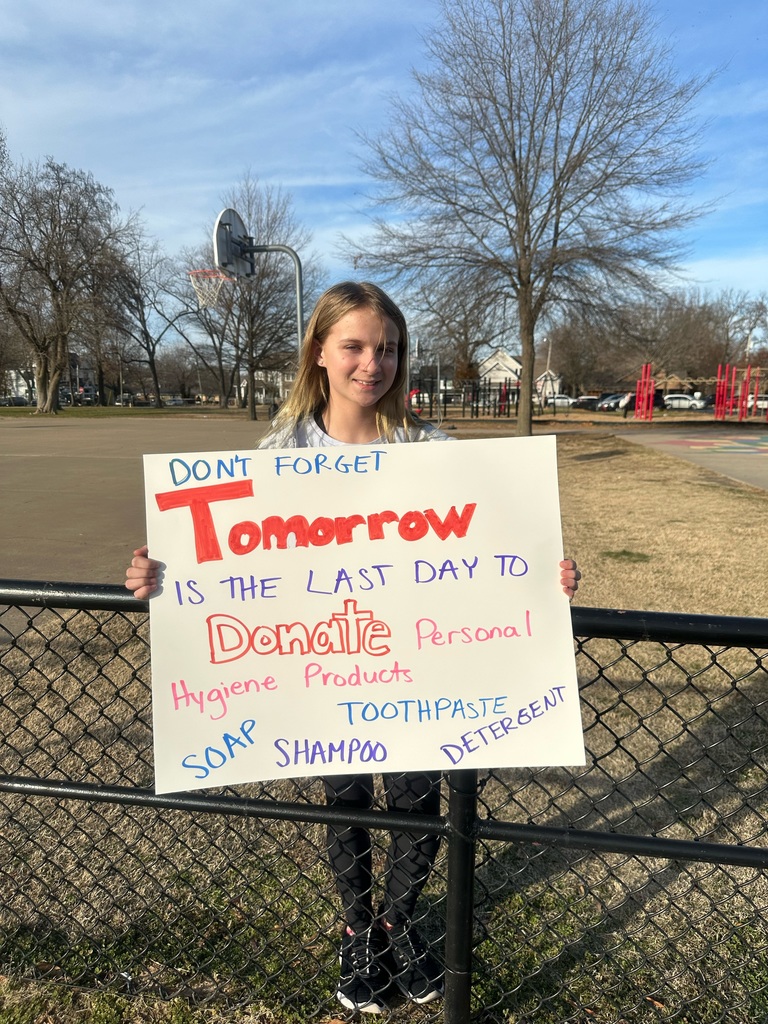 DON'T FORGET
Tomorrow
IS THE LAST DAY TO
Donate Personal
Hygiene Products
TOOTHPASTE
SOAP SHAMPOO DETERGENT